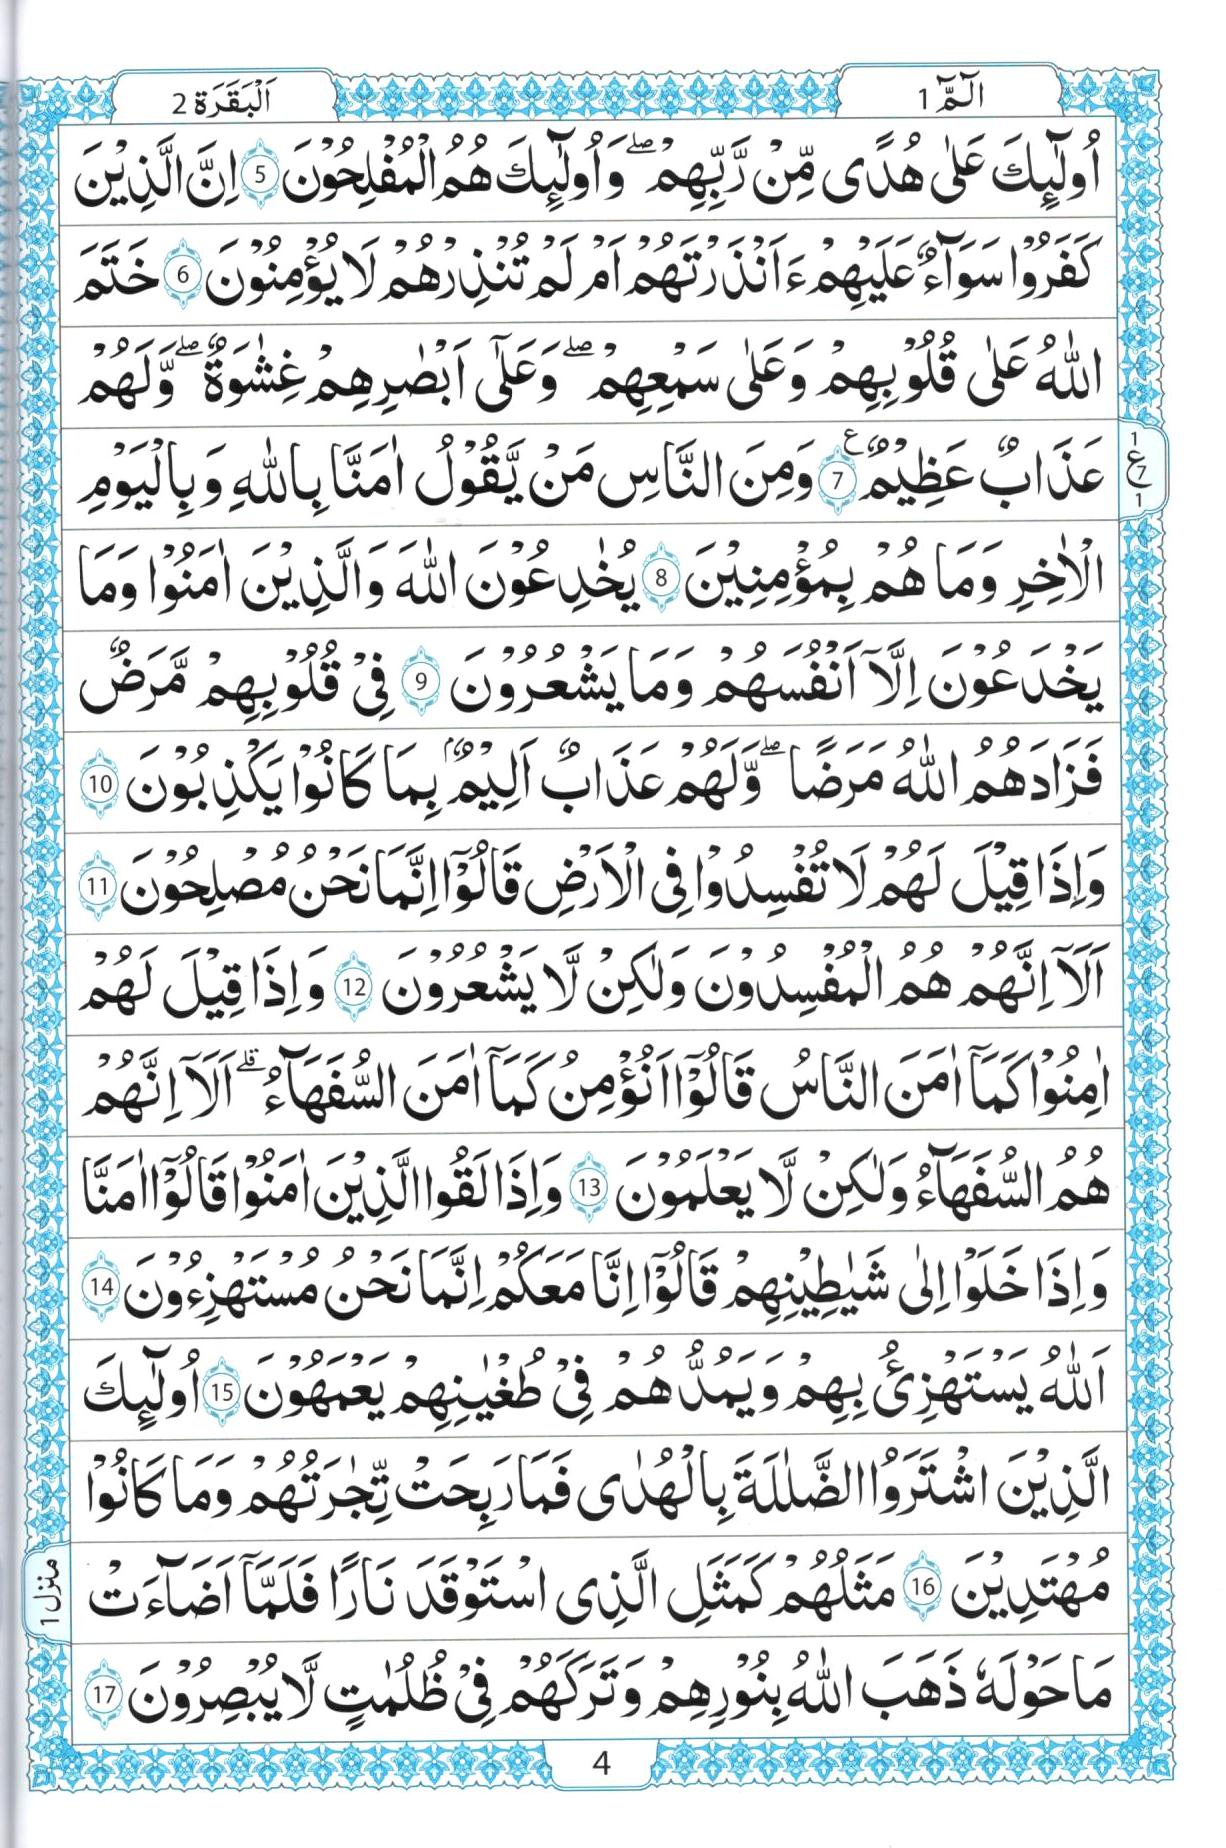 الٓمّٓ 1
اَلْبَقَرَة 2
اُولٰٓئِكَ عَلٰى هُدًى مِّنْ رَّبِّهِمْ ۖ وَاُولٰٓئِكَ هُمُ الْمُفْلِحُوْنَ 5 اِنَّ الَّذِيْنَ
كَفَرُوْا سَوَآءٌ عَلَيْهِمْ ءَاَنْذَرْتَهُمْ اَمْ لَمْ تُنْذِرْهُمْ لَا يُؤْمِنُوْنَ 6 خَتَمَ
اللّٰهُ عَلٰى قُلُوْبِهِمْ وَعَلٰى سَمْعِهِمْ ۖ وَعَلٰٓى اَبْصٰرِهِمْ غِشٰوَةٌ ۖ وَّلَهُمْ
عَذَابٌ عَظِيْمٌ ع 7 وَمِنَ النَّاسِ مَنْ يَّقُوْلُ اٰمَنَّا بِاللّٰهِ وَبِالْيَوْمِ
1 ع 7 1
الْاٰخِرِ وَمَا هُمْ بِمُؤْمِنِيْنَ 8 يُخٰدِعُوْنَ اللّٰهَ وَالَّذِيْنَ اٰمَنُوْا وَمَا
يَخْدَعُوْنَ اِلَّآ اَنْفُسَهُمْ وَمَا يَشْعُرُوْنَ 9 فِيْ قُلُوْبِهِمْ مَّرَضٌ
فَزَادَهُمُ اللّٰهُ مَرَضًا ۖ وَّلَهُمْ عَذَابٌ اَلِيْمٌۢ بِمَا كَانُوْا يَكْذِبُوْنَ 10
وَاِذَا قِيْلَ لَهُمْ لَا تُفْسِدُوْا فِى الْاَرْضِ قَالُوْٓا اِنَّمَا نَحْنُ مُصْلِحُوْنَ 11
اَلَآ اِنَّهُمْ هُمُ الْمُفْسِدُوْنَ وَلٰكِنْ لَّا يَشْعُرُوْنَ 12 وَاِذَا قِيْلَ لَهُمْ
اٰمِنُوْا كَمَآ اٰمَنَ النَّاسُ قَالُوْٓا اَنُؤْمِنُ كَمَآ اٰمَنَ السُّفَهَآءُ ۗ اَلَآ اِنَّهُمْ
هُمُ السُّفَهَآءُ وَلٰكِنْ لَّا يَعْلَمُوْنَ 13 وَاِذَا لَقُوا الَّذِيْنَ اٰمَنُوْا قَالُوْٓا اٰمَنَّا
وَاِذَا خَلَوْا اِلٰى شَيٰطِيْنِهِمْ قَالُوْٓا اِنَّا مَعَكُمْ اِنَّمَا نَحْنُ مُسْتَهْزِءُوْنَ 14
اَللّٰهُ يَسْتَهْزِئُ بِهِمْ وَيَمُدُّهُمْ فِيْ طُغْيٰنِهِمْ يَعْمَهُوْنَ 15 اُولٰٓئِكَ
الَّذِيْنَ اشْتَرَوُا الضَّلٰلَةَ بِالْهُدٰى فَمَا رَبِحَتْ تِّجٰرَتُهُمْ وَمَا كَانُوْا
مُهْتَدِيْنَ 16 مَثَلُهُمْ كَمَثَلِ الَّذِى اسْتَوْقَدَ نَارًا فَلَمَّآ اَضَآءَتْ
منزل 1
مَا حَوْلَهٗ ذَهَبَ اللّٰهُ بِنُوْرِهِمْ وَتَرَكَهُمْ فِيْ ظُلُمٰتٍ لَّا يُبْصِرُوْنَ 17
4